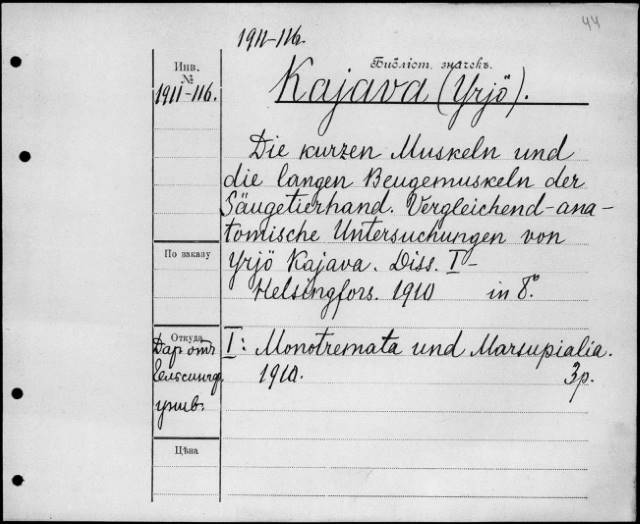 44
1911-116.
Инв.
№
1911-116.
Библіот. значекъ.
Kajava (Yrjö).
Die kurzen Muskeln und
die langen Beugemuskeln der
Säugetierhand. Vergleichend-ana-
tomische Untersuchungen von
Yrjö Kajava. Diss. I-
Helsingfors. 1910 in 8°.
По заказу
Откуда
Даръ отъ
Гельсингф.
унив.
I: Monotremata und Marsupialia.
1910. 3р.
Цѣна